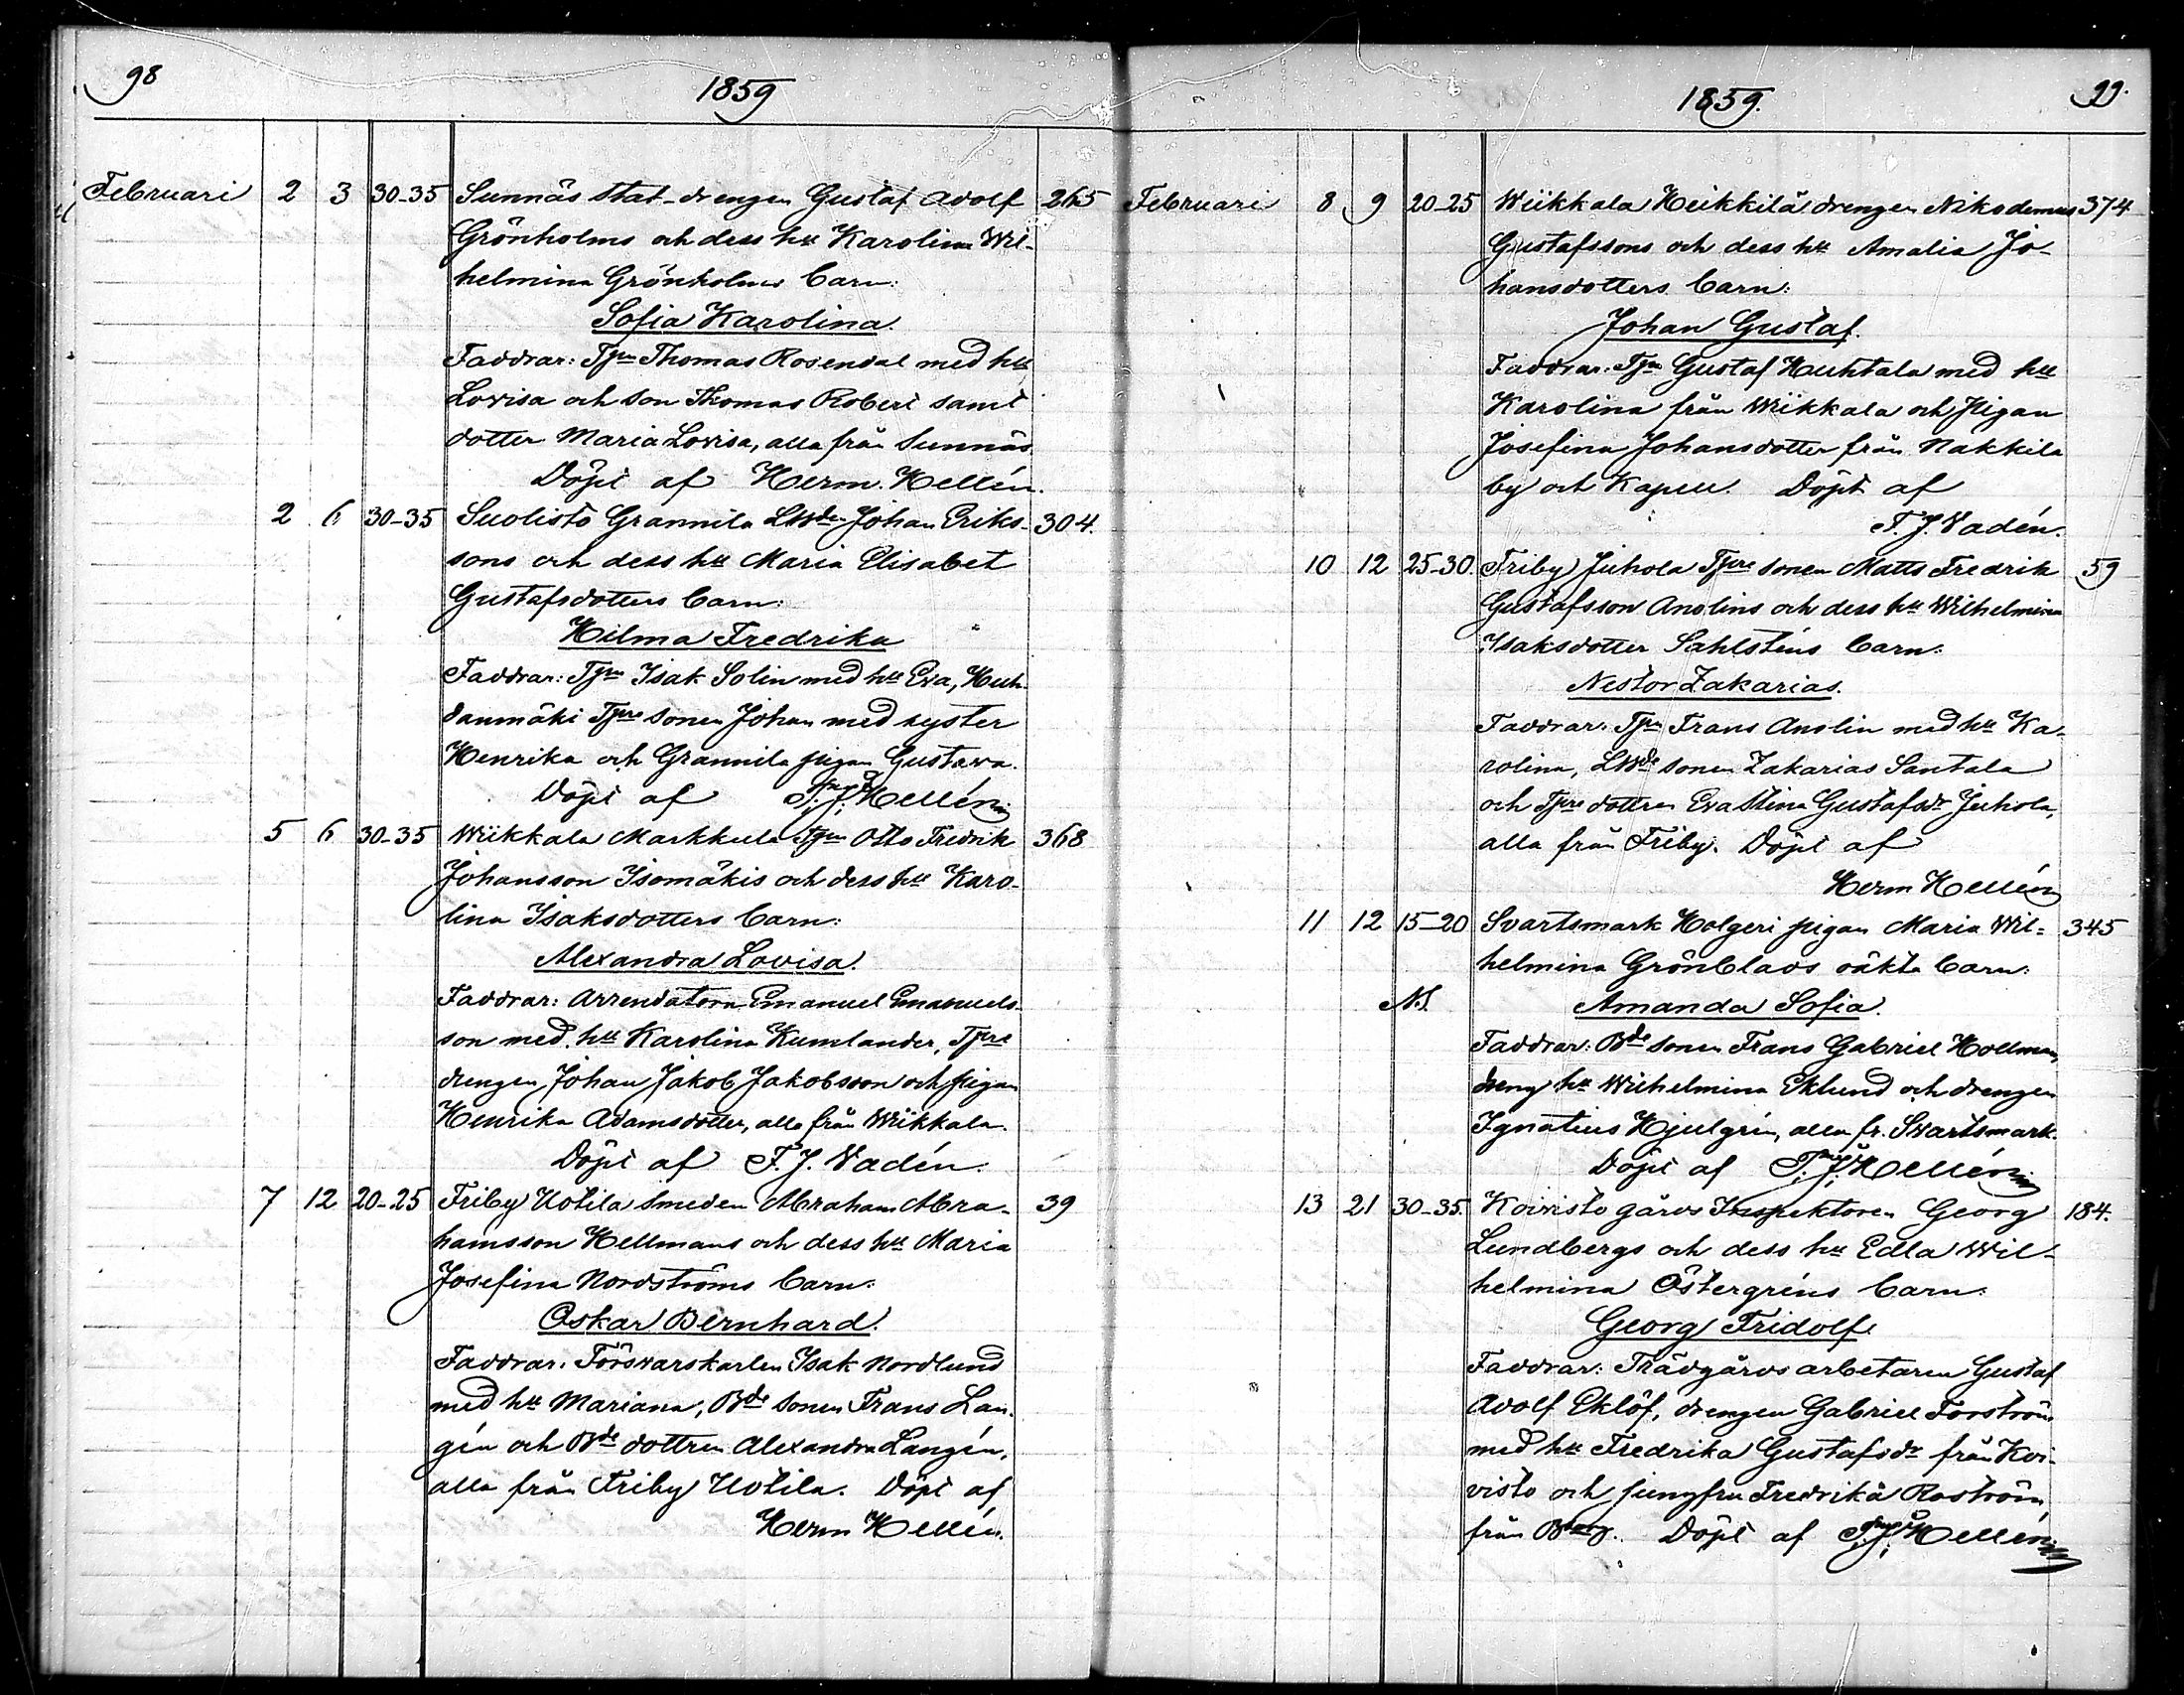 98
1859
Februari 2 3 30-35 Sunnäs stat-drengen Gustaf Adolf 265
Grönholms och dess htt Karolina Wil-
helmina Grönholms barn:
Sofia Karolina.
Faddrar: Tpn Thomas Rosendal med htt
Lovisa och son Thomas Robert samt
dotter Maria Lovisa, alla från Sunnäs.
Döpt af Herm. Hellén.
2 6 30-35 Suolisto Grannila LBden Johan Eriks- 304.
sons och dess htt Maria Elisabet
Gustafsdotters barn:
Hilma Fredrika
Faddrar: Tpn Isak Solin med htt Eva, Huh-
danmäki Tpre sonen Johan med syster
Henrika och Grannila pigan Gustava.
Döpt af Hellén
5 6 30-35 Wiikkala Markkula Tpn Otto Fredrik 368
Johansson Isomäkis och dess htt Karo-
lina Isaksdotters barn:
Alexandra Lovisa.
Faddrar: Arrendatorn Emanuel Emanuels-
son med htt Karolina Kumlander, Tpre
drengen Johan Jakob Jakobsson och pigan
Henrika Adamsdotter, alla från Wiikkala.
Döpt af F. J. Vadén.
7 12 20-25 Friby Uotila smeden Abraham Abra- 39
hamsson Hellmans och dess htt Maria
Josefina Nordströms barn:
Oskar Bernhard.
Faddrar: Försvarskarlen Isak Nordlund
med htt Mariana, Bde sonen Frans Lan-
gén och Bde dottren Alexandra Langén,
alla från Friby Uotila. Döpt af
Herm Hellén.
1859.
99.
Februari 8 9 20-25 Wiikkala Heikkilä drengen Nikodemus 374
Gustafssons och dess htt Amalia Jo-
hansdotters barn:
Johan Gustaf.
Faddrar: Tpn Gustaf Huhtala med htt
Karolina från Wiikkala och pigan
Josefina Johansdotter från Nakkila
by och Kapell. Döpt af
F. J. Vadén.
10 12 25-30. Friby Juhola Tpre sonen Matts Fredrik 59
Gustafsson Anolins och dess htt Wilhelmina
Isaksdotter Sahlsténs barn:
Nestor Zakarias.
Faddrar: Tpn Frans Anolin med htt Ka-
rolina, LBde sonen Zakarias Santala
och Tpre dottren Eva Stina Gustafsdr Juhola,
alla från Friby. Döpt af
Herm Hellén
11 12 15-20 Svartsmark Holgeri pigan Maria Wil= 345
helmina Grönblads oäkta barn:
Amanda Sofia.
Faddrar: Bde sonen Frans Gabriel Hollmen,
dreng htt Wilhelmina Eklund och drengen
Ignatius Hjulgrén, alla fr. Svartsmark.
Döpt af Hellén
13 21 30-35. Koivisto gårds Inspektoren Georg 184.
Lundbergs och dess htt Edla Wil-
helmina Östergréns barn:
Georg Fridolf.
Faddrar: Trädgårds arbetaren Gustaf
Adolf Eklöf, drengen Gabriel Forström
med htt Fredrika Gustafsdr från Koi-
visto och jungfru Fredrika Roström
från Döpt af Hellén